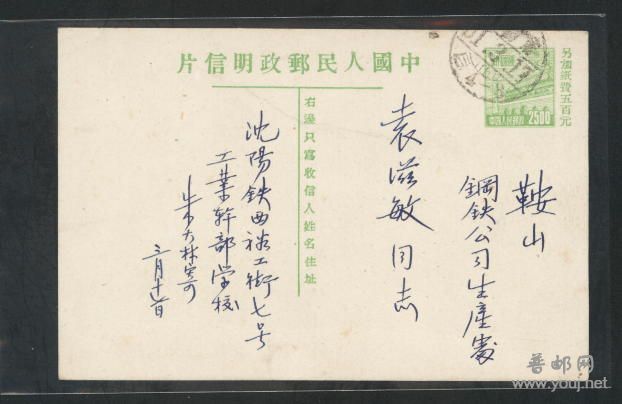 中國人民郵政明信片
另加紙費五百元
中國人民郵政
2500
鞍山
鋼鉄公司生產處
袁滋敏同志
右邊只寫收信人姓名住址
沈陽鉄西裕工街七号
工業幹部学校
三月十
普邮网
www.youj.net